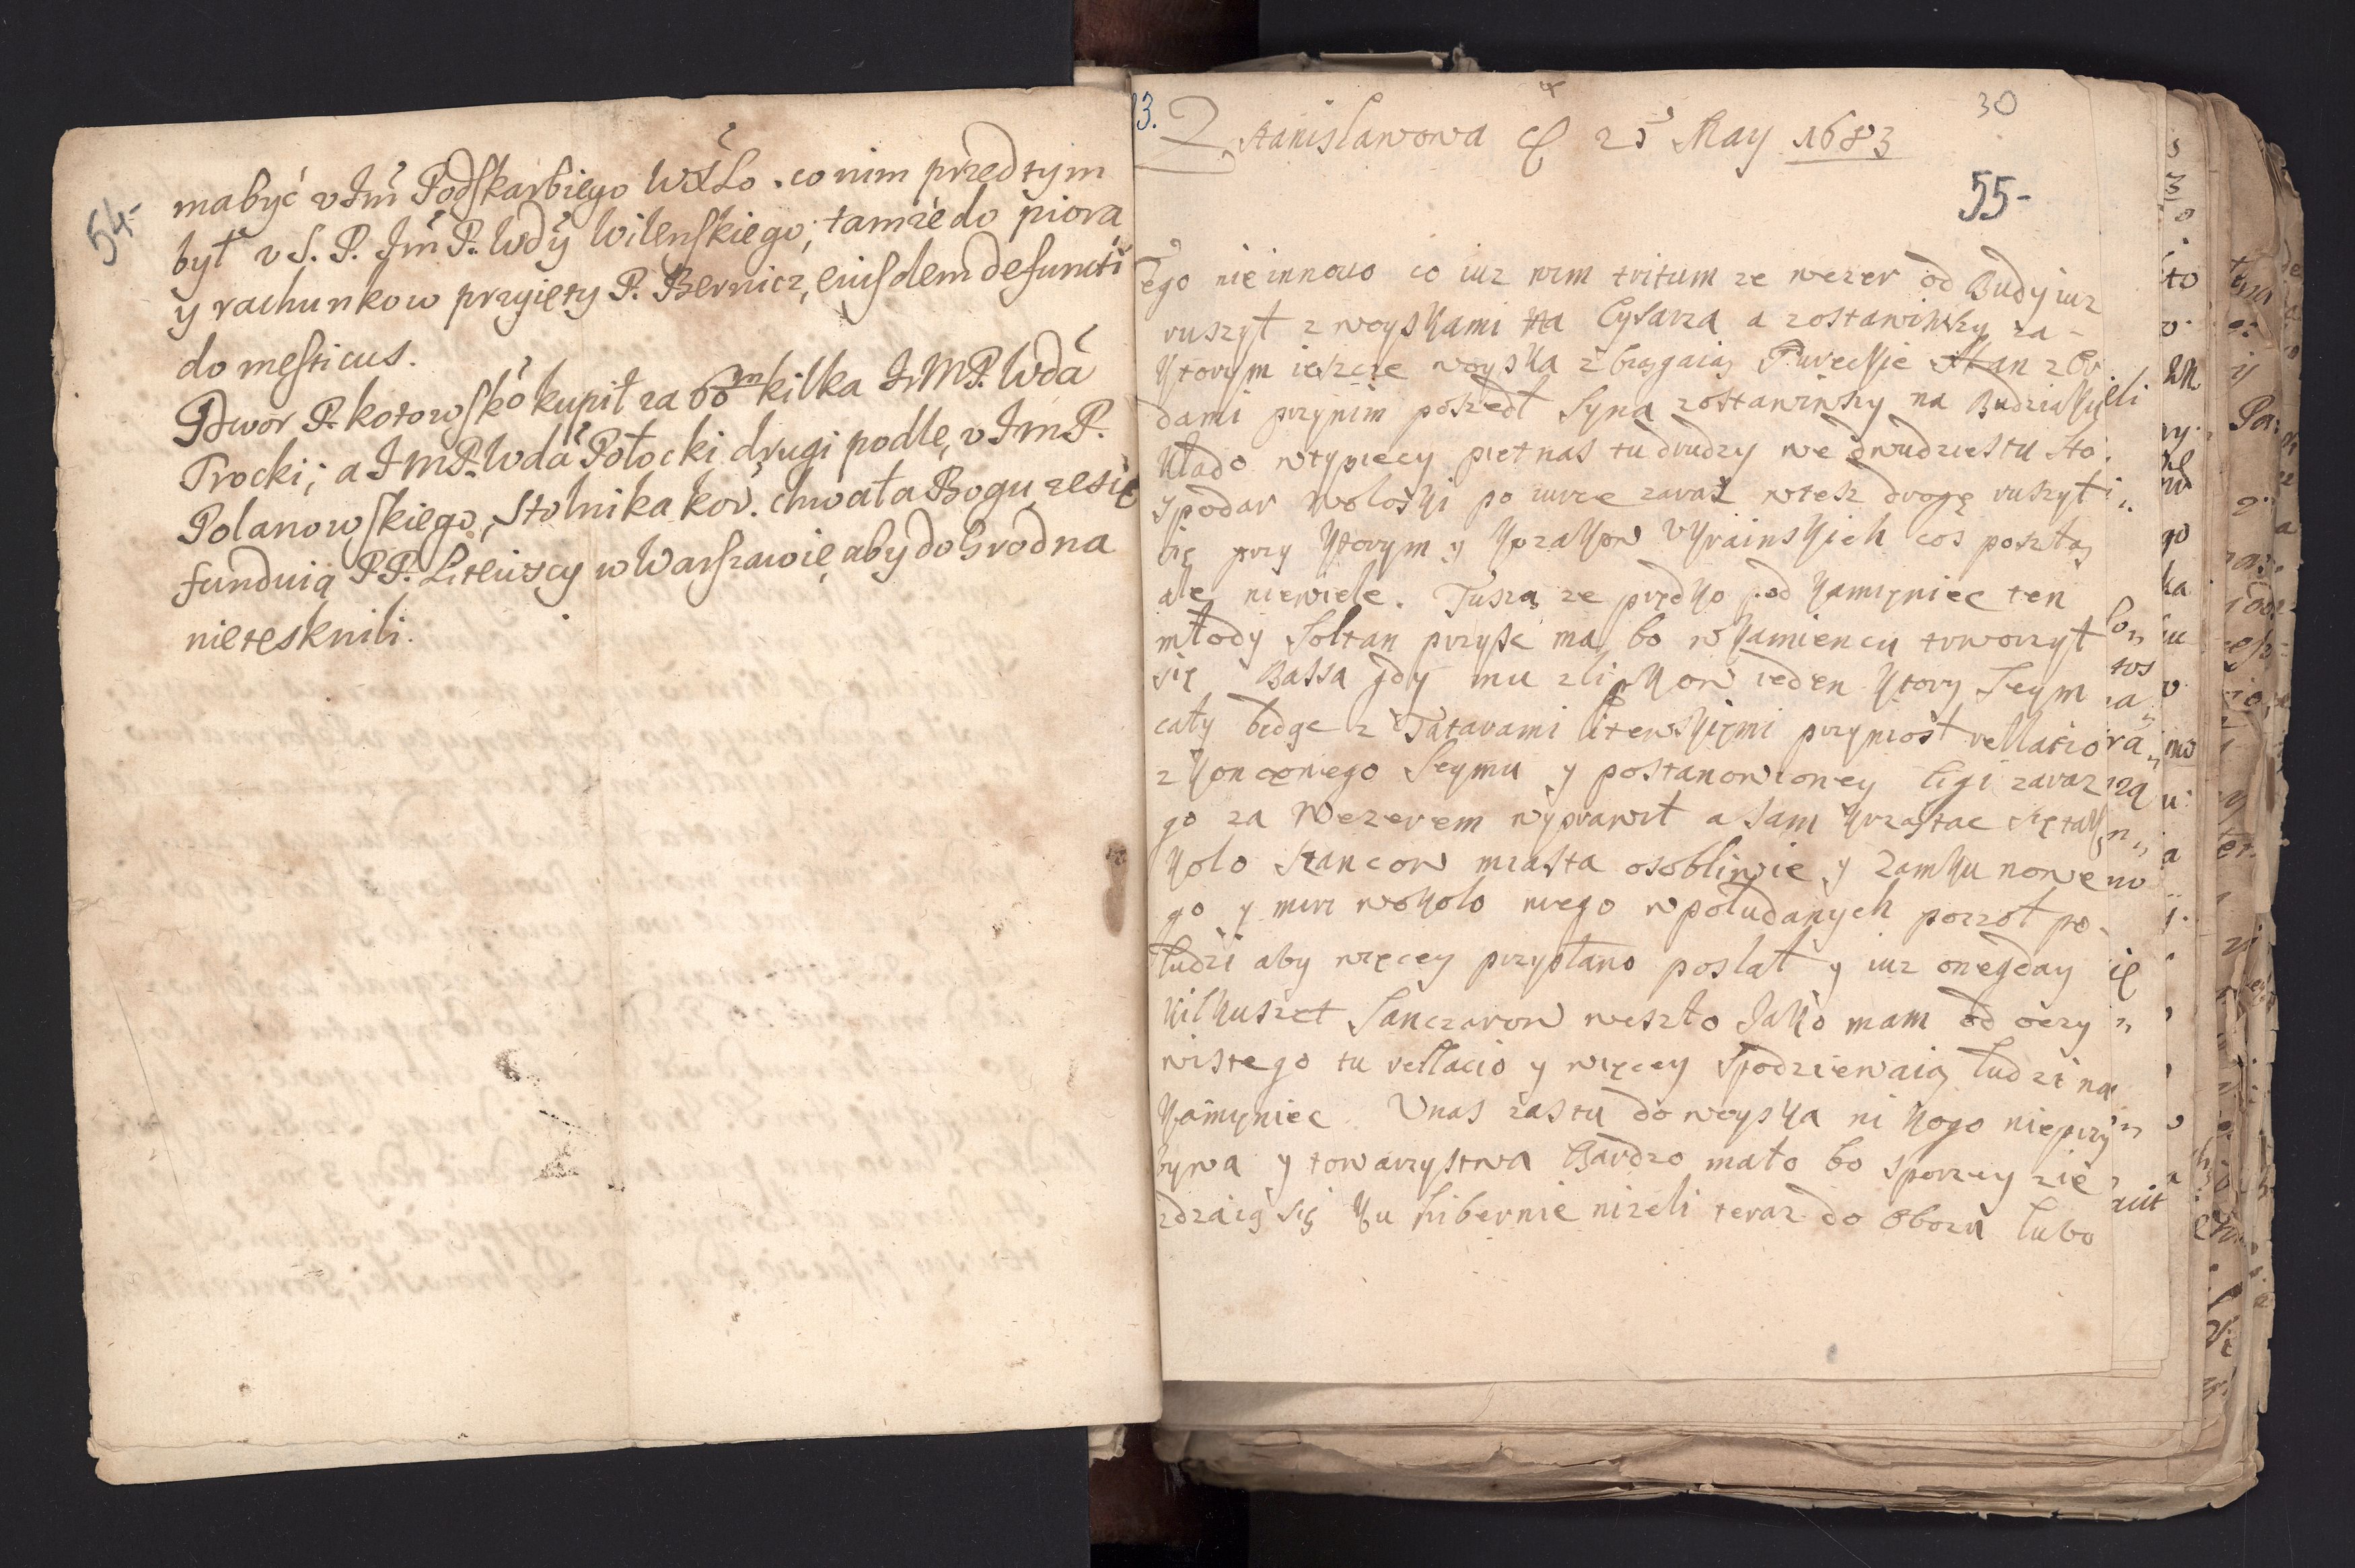 54-
ma być v Jm̃ Podskarbiego WXLo. co nim przed tym
był v S. P. Jm̃ P. Wdy Wilenskiego, tamże do piora
y rachunkow przyięty P. Bernicz, eiusdem defuncti
domesticus.
Dwor P. Kotowsko kupił za 60 m kilka JMP. Wda
Trocki; a JMP. Wda Połocki drugi podle, v JmP.
Polanowskiego, Stolnika kor. chwała Bogu ze się
funduią PP. Litewscy w Warszawie, aby do Grodna
nie tesknili.
13. Z Stanisławowa 25 May 1683
30
55-
Tego nie innowo co iuz wim tritum ze wezer od Budy iuz
ruszył z woyskami na Cysarza a zostawiwszy za-
ktorym ieszcze woyska zbiegaią Tureckie Han z Or
dami przy nim poszedł Syna zostawiwszy na Budziaku
kłado w tysiecy pietnas tu drudzy we dwudziestu Ho:
spodar Wołoski po iurze zaraz w tesz drogę ruszył
się przy ktorym y kozakow Vkrainskich cos poszło
ale niewiele. Tuszą ze prędko pod Kamięniec ten
młody Sołtan przyść ma, bo w Kamiencu trworzył
się Bassa gdy mu zlipkow ieden ktory Seym
cały będąc z Tatarami Litewskięmi przyniosł rellatio
zkonczonego Seymu y postanowioney Ligi zaraz
go za Wezerem wyprawił a sam krzątac się tak
koło szancow miasta osobliwie y Zamku nowe
go y mur wokoło niego wpołudanych poczoł po-
Ludzi aby więcey przysłano posłał y iuz onegday
kilkuszet Janczarow weszło Jako mam od oczy
wistego tu rellacio y więcey spodziewaią ludzi na
Kamięniec. V nas zas tu do woyska ni kogo nie przy
bywa y towarzystwa Bardzo mało bo sporzey zie
zdzaią się ku hibernie nizeli teraz do Obozu lubo